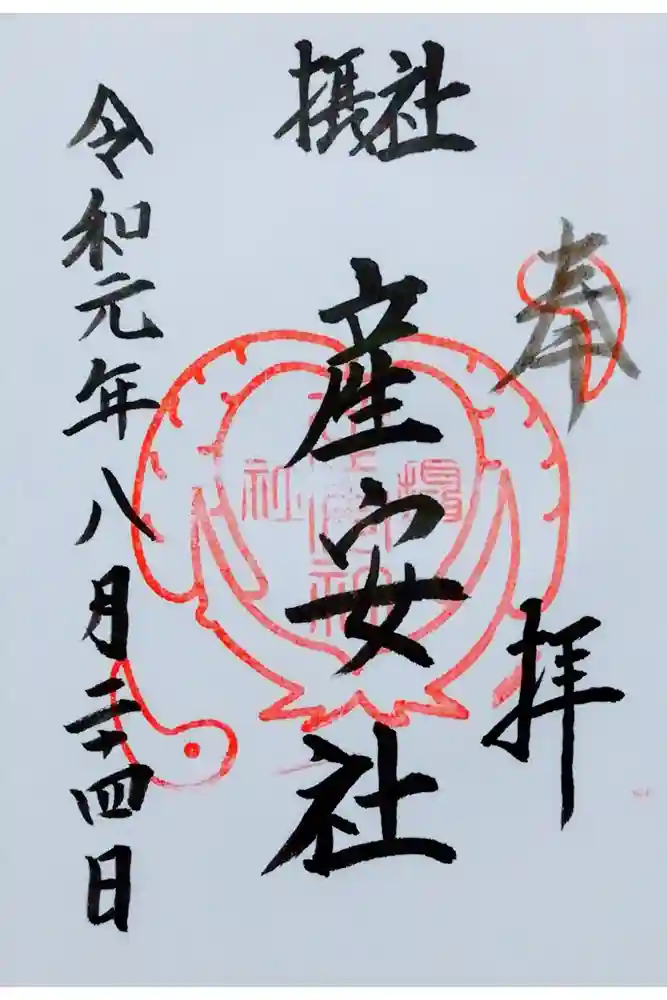 奉拝
摂社
産安社
令和元年八月二十四日